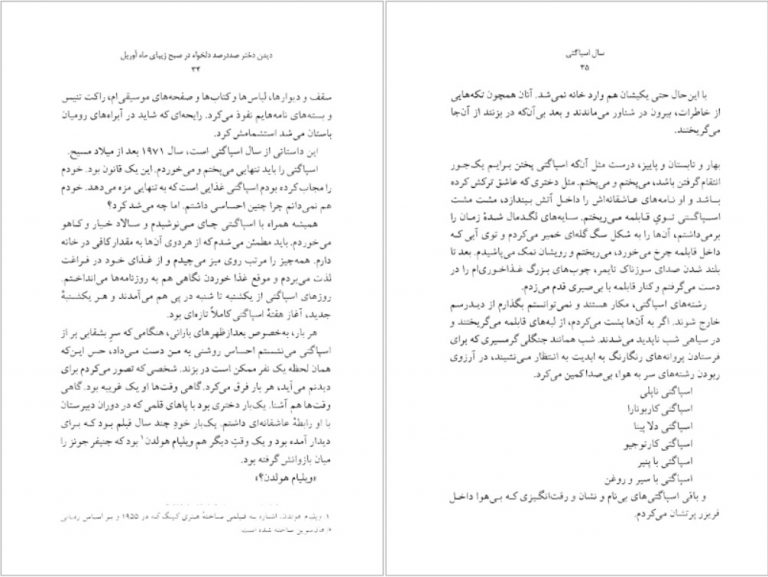 دیدن دختر صددرصد دلخواه در صبح زیبای ماه آوریل
۳۴
سقف و دیوارها، لباس‌ها و کتاب‌ها و صفحه‌های موسیقی‌ام، راکت تنیس
و بسته‌های نامه‌هایم نفوذ می‌کرد. رایحه‌ای که شاید در آبراه‌های رومیان
باستان می‌شد استشمامش کرد.
این داستانی از سال اسپاگتی است، سال ۱۹۷۱ بعد از میلاد مسیح.
اسپاگتی را باید تنهایی می‌پختم و می‌خوردم. این یک قانون بود. خودم
را مجاب کرده بودم اسپاگتی غذایی است که به تنهایی مزه می‌دهد. خودم
هم نمی‌دانم چرا چنین احساسی داشتم. اما چه می‌شد کرد؟
همیشه همراه با اسپاگتی چای می‌نوشیدم و سالاد خیار و کاهو
می‌خوردم. باید مطمئن می‌شدم که از هردوی آن‌ها به مقدار کافی در خانه
دارم. همه‌چیز را مرتب روی میز می‌چیدم و از غذای خود در فراغت
لذت می‌بردم و موقع غذا خوردن نگاهی هم به روزنامه‌ها می‌انداختم.
روزهای اسپاگتی از یکشنبه تا شنبه در پی هم می‌آمدند و هر یکشنبهٔ
جدید، آغاز هفتهٔ اسپاگتی کاملاً تازه‌ای بود.
هر بار، به‌خصوص بعدازظهرهای بارانی، هنگامی که سر بشقابی پر از
اسپاگتی می‌نشستم احساس روشنی به من دست می‌داد، حس این‌که
همان لحظه یک نفر ممکن است در بزند. شخصی که تصور می‌کردم برای
دیدنم می‌آید، هر بار فرق می‌کرد. گاهی وقت‌ها او یک غریبه بود. گاهی
وقت‌ها هم آشنا. یک‌بار دختری بود با پاهای قلمی که در دوران دبیرستان
با او رابطهٔ عاشقانه‌ای داشتم. یک‌بار خودِ چند سال قبلم بود که برای
دیدار آمده بود و یک وقتِ دیگر هم ویلیام هولدن۱ بود که جنیفر جونز را
میان بازوانش گرفته بود.
«ویلیام هولدن؟»
۱. ویلیام هولدن، اشاره به فیلمی ساختهٔ هنری کینگ که در ۱۹۵۵ و بر اساس رمانی
ساخته شده است
سال اسپاگتی
۳۵
با این‌حال حتی یکیشان هم وارد خانه نمی‌شد. آنان همچون تکه‌هایی
از خاطرات، بیرون در شناور می‌ماندند و بعد بی‌آن‌که در بزنند از آن‌جا
می‌گریختند.
بهار و تابستان و پاییز، درست مثل آن‌که اسپاگتی پختن برایم یک‌جور
انتقام گرفتن باشد، می‌پختم و می‌پختم. مثل دختری که عاشق ترکش کرده
باشد و او نامه‌های عاشقانه‌اش را داخل آتش بیندازد، مشت مشت
اسپاگتی توی قابلمه می‌ریختم. سایه‌های لگدمال شدهٔ زمان را
برمی‌داشتم، آن‌ها را به شکل سگ گله‌ای خمیر می‌کردم و توی آبی که
داخل قابلمه چرخ می‌خورد، می‌ریختم و رویشان نمک می‌پاشیدم. بعد تا
بلند شدن صدای سوزناک تایمر، چوب‌های بزرگ غذاخوری‌ام را در
دست می‌گرفتم و کنار قابلمه با بی‌صبری قدم می‌زدم.
رشته‌های اسپاگتی، مکار هستند و نمی‌توانستم بگذارم از دیدرسم
خارج شوند. اگر به آن‌ها پشت می‌کردم، از لبه‌های قابلمه می‌گریختند و
در سیاهی شب ناپدید می‌شدند. شب همانند جنگلی گرمسیری که برای
فرستادن پروانه‌های رنگارنگ به ابدیت به انتظار می‌نشیند، در آرزوی
ربودن رشته‌های سر به هوا، بی‌صدا کمین می‌کرد.
اسپاگتی ناپلی
اسپاگتی کاربونارا
اسپاگتی دلا پینا
اسپاگتی کارتوجیو
اسپاگتی با پنیر
اسپاگتی با سیر و روغن
و باقی اسپاگتی‌های بی‌نام و نشان و رقت‌انگیزی که بی‌هوا داخل
فریزر پرتشان می‌کردم.